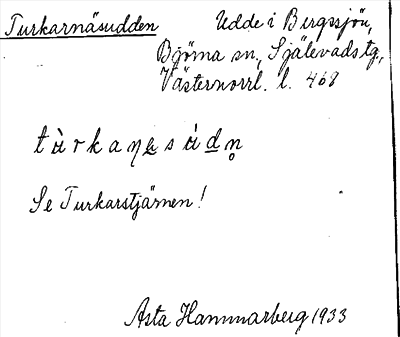 Turkarnäsudden Udde i Bergssjön,
Björna sn, Själevads tg,
Västernorrl. l. 468
Se Turkarstjärnen!
Asta Hammarberg 1933